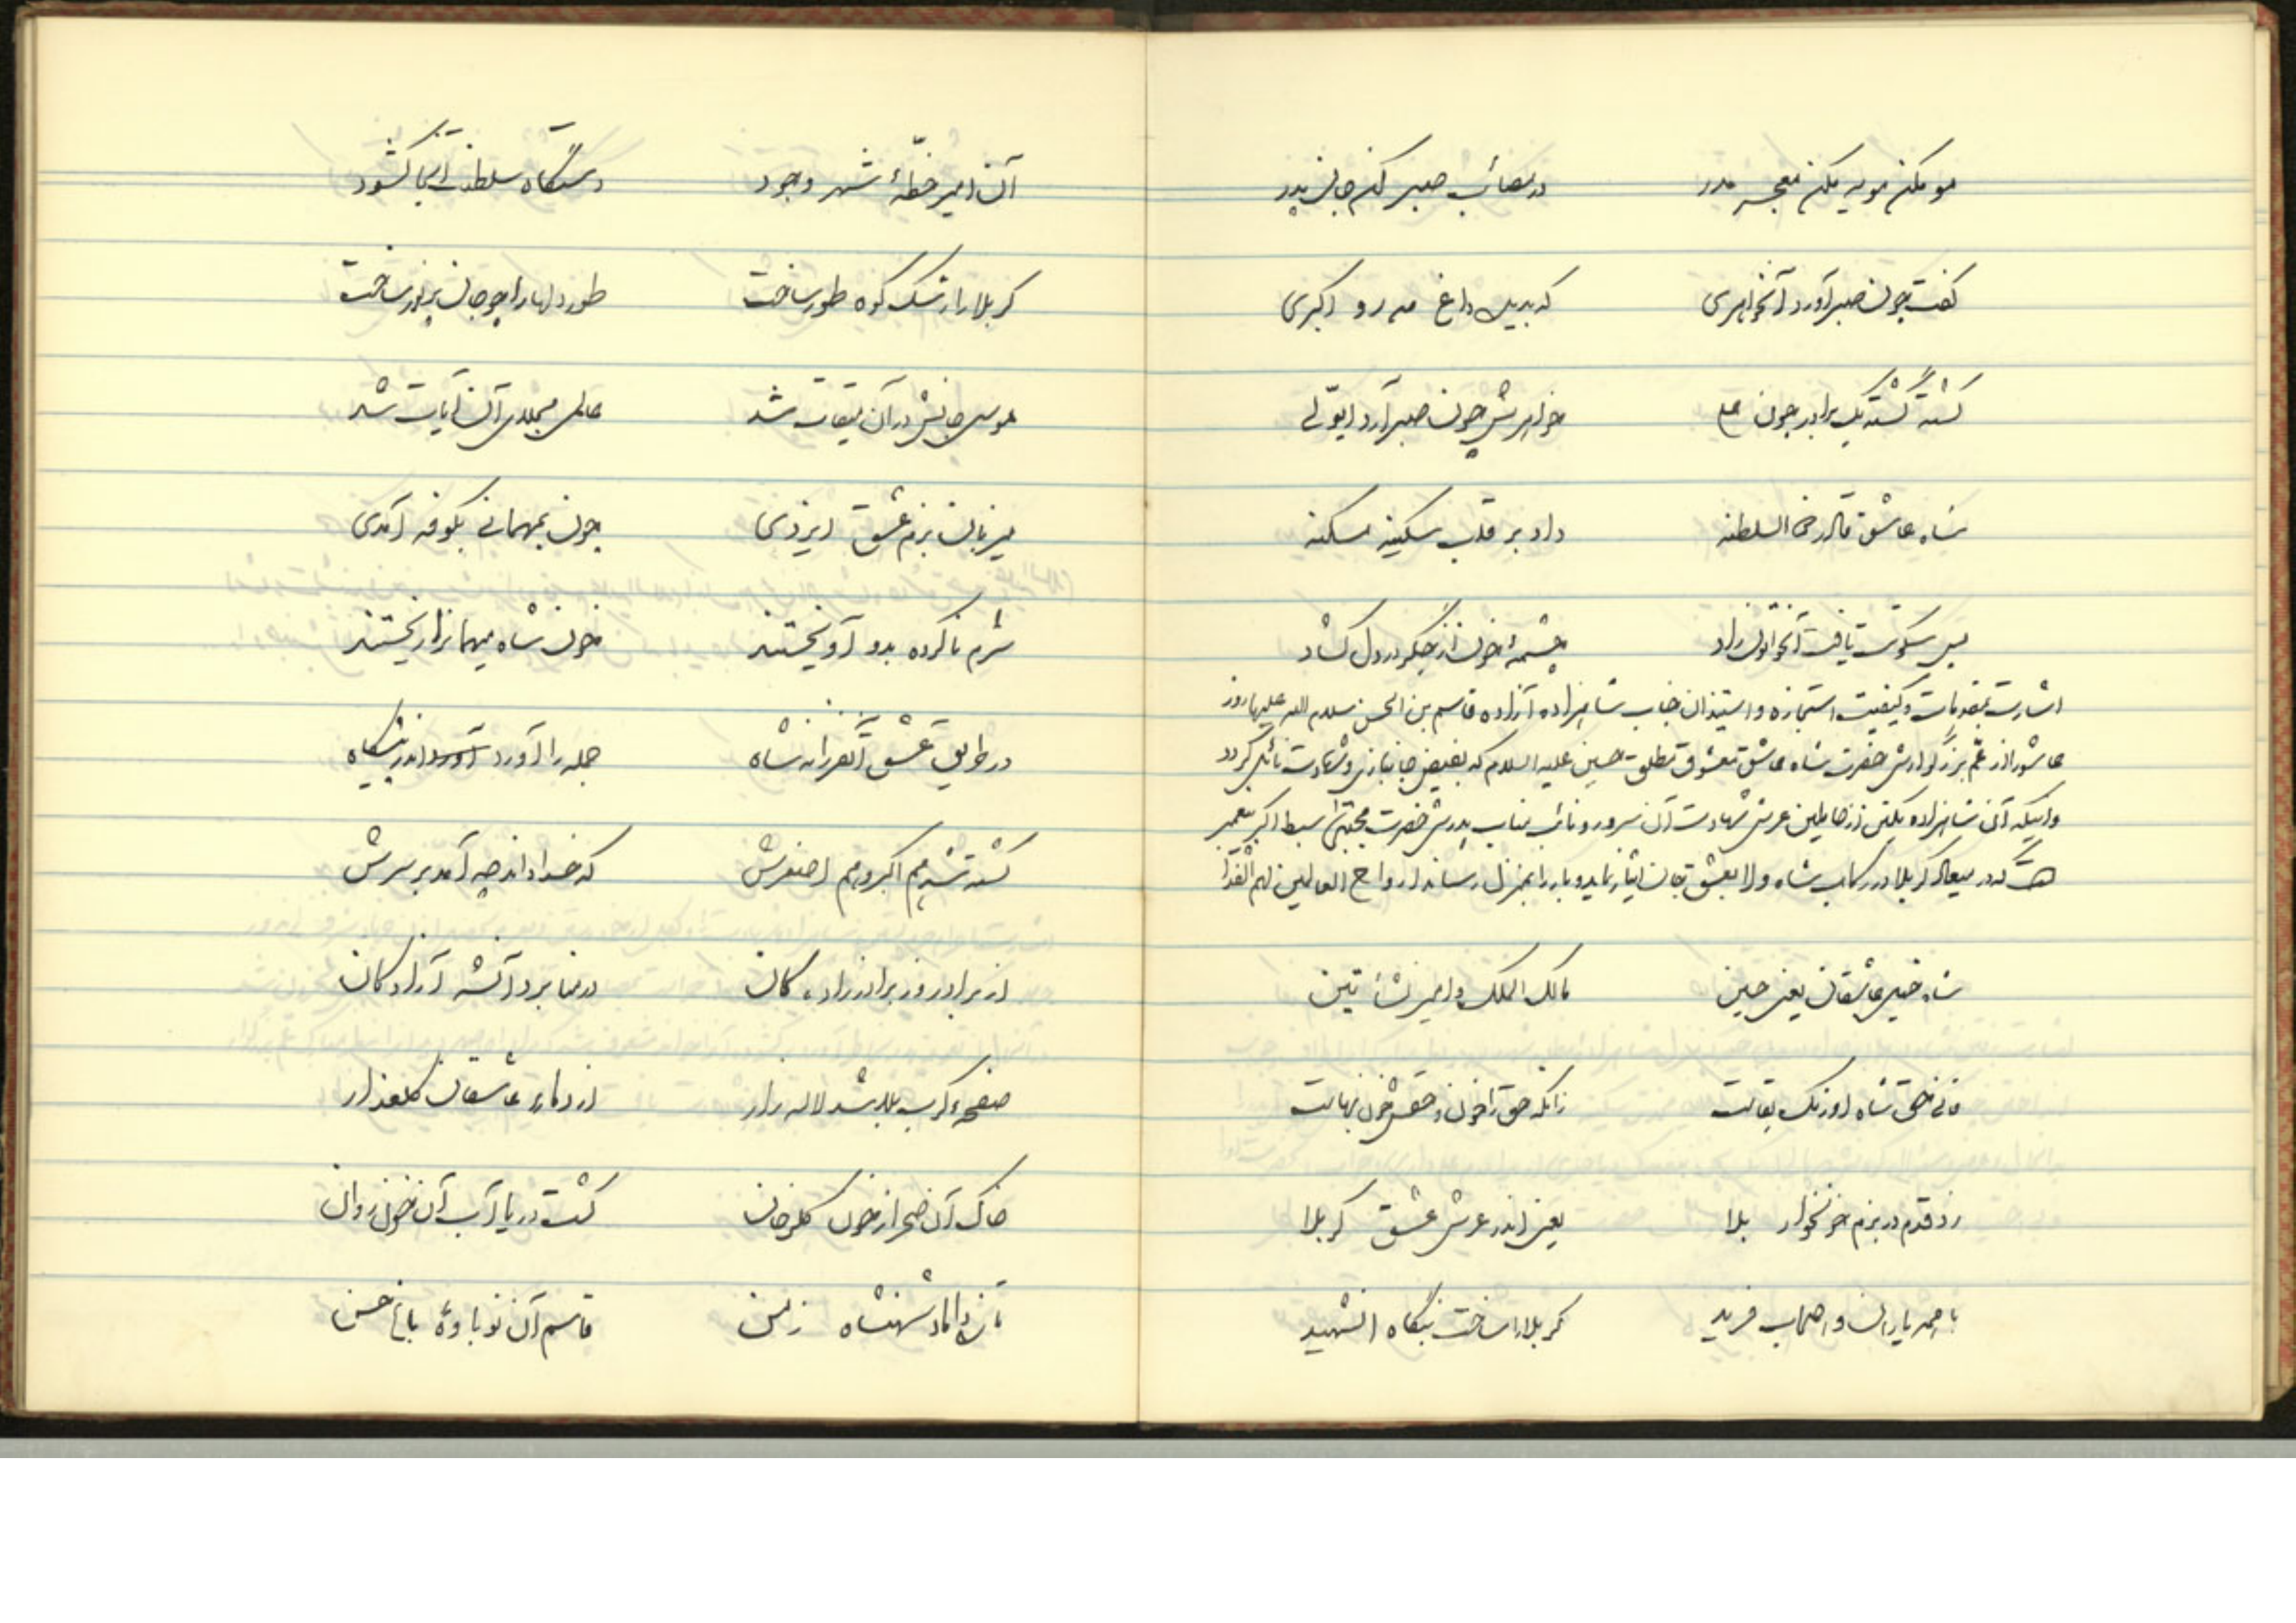 مو مکن مویه مکن معجر مدر در مصائب صبر کن جان پدر
گفت چون صبر آورد آنخواهری که بدیده داغ مه رو اکبری
کشته گشته یک برادر چون علی خواهرش چون صبر آرد ایولی
شاه عاشق قادر حق السلطنه داد بر قلب سکینه مسکنه
پس سکونت یافت آنخواتون راد چشمهٔ خون از جگر در دل گشاد
اشارت بمقدمات و کیفیت استجازه و استیذان جناب شاهزاده آزاده قاسم بن الحسن سلام الله علیها روز
عاشورا از عم بزرگوارش حضرت شاه عاشق معشوق مطلق حسین علیه السلام که بفیض جانبازی و شهادت نائل گردد
و اینکه آن شاهزاده یکتن از حاملین عرش شهادت آن سرور و نائب مناب پدرش حضرت مجتبی سبط اکبر پیغمبر
است که در میعاد کربلا در رکاب شاه ولا بعشق جان ایثار نماید و بار را بمنزل رساند ارواح العالمین لهم الفدا
شاه خیل عاشقان یعنی حسین مالک الملک و امیر نشأتین
فانی حق شاه اورنگ بقاست زانکه حق را خون و حقش خون بهاست
زد قدم در بزم خونخوار بلا یعنی اندر عرش عشق کربلا
با همه یاران و اصحاب فرید کربلا را ساخت بنگاه آنشهید
آن امیر خطهٔ شهر وجود دستگاه سلطنت آنجا گشود
کربلا را رشک کوه طور ساخت طور دلها را چو جان پر نور ساخت
موسی جانش در آن میقات شد عالمی مجلای آن آیات شد
میزبان بزم عشق ایزدی چون بمهمانی بکوفه آمدی
شرم ناکرده بدو آویختند خون شاه میهمانرا ریختند
در طریق عشق آنفرزانه شاه جمله را آورد اندر پیشگاه
کشته شد هم اکبر و هم اصغرش که خدا داند چه آمد بر سرش
از برادر وز برادرزادگان در منا برد آنشه آزادگان
صفحهٔ کرب بلا شد لاله زار از دماء عاشقان گلعذار
خاک آن صحرا ز خون گلرخان گشت دریا آب آن خون روان
شاهنشاه زمن قاسم آن نوباوهٔ باغ حسن